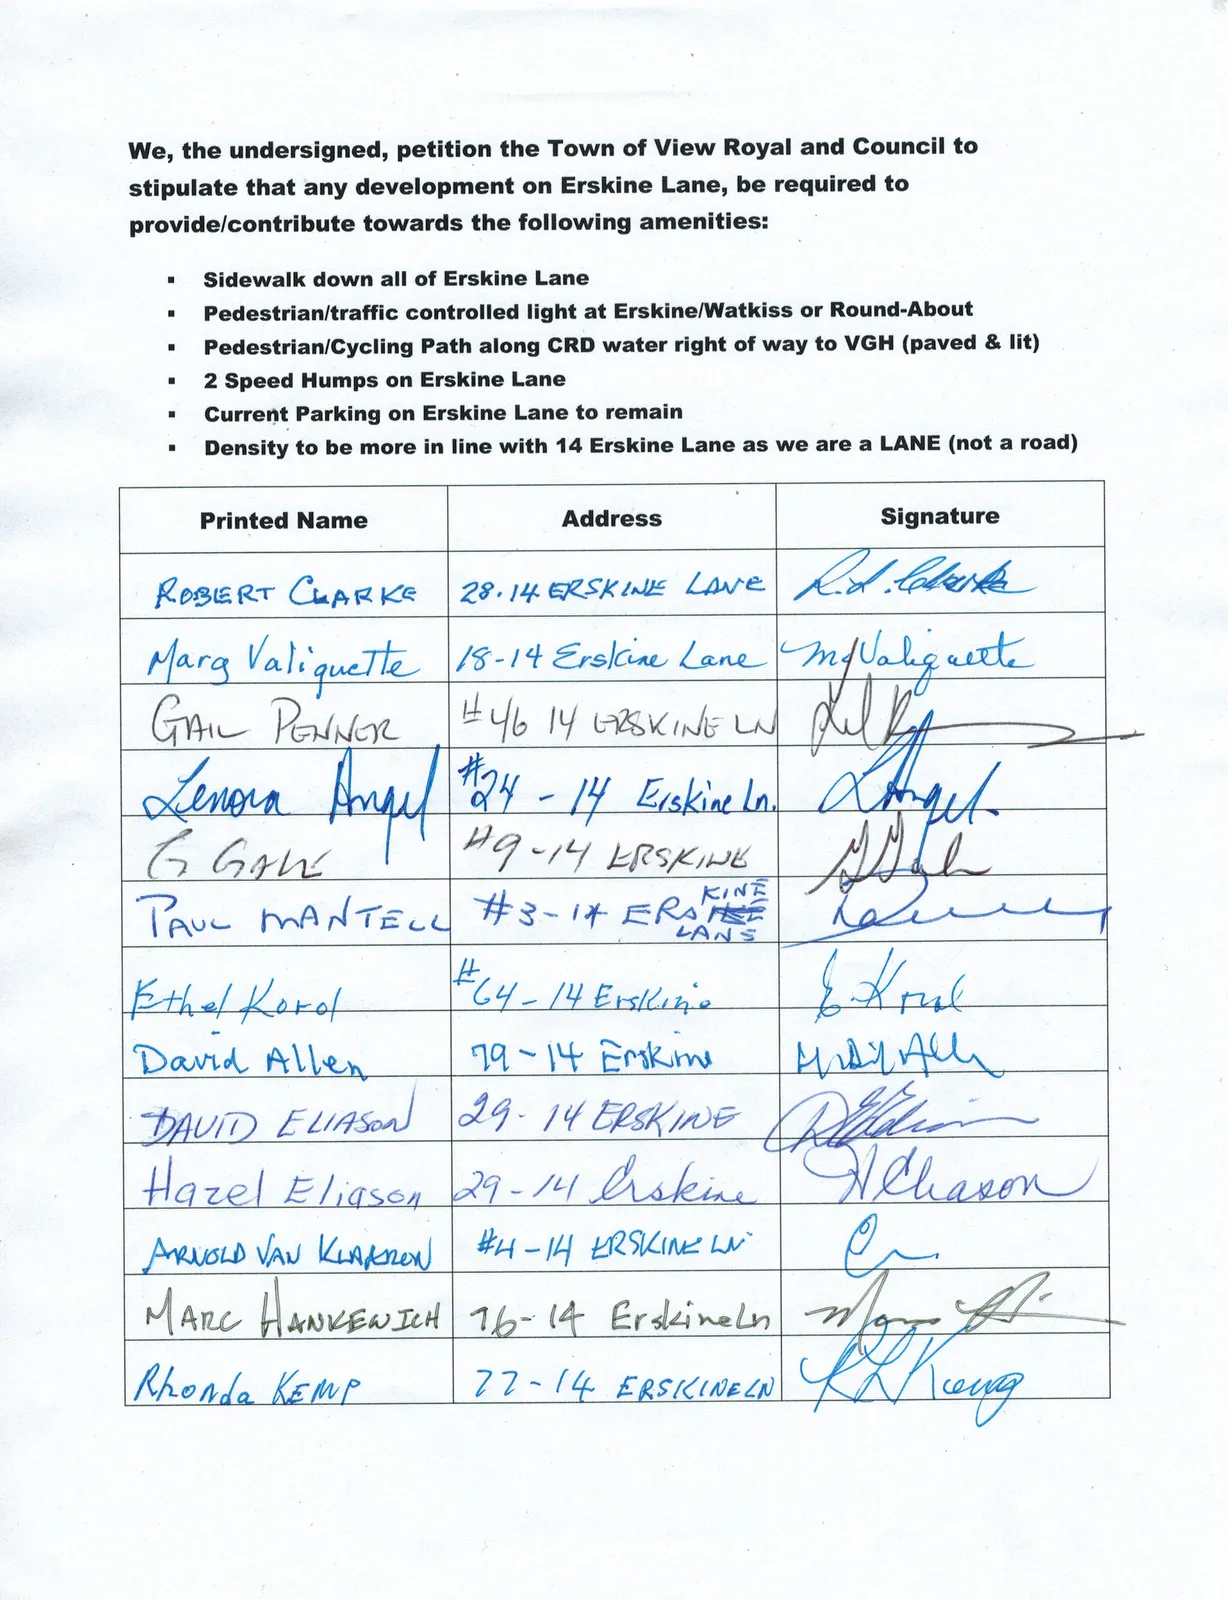 We, the undersigned, petition the Town of View Royal and Council to
stipulate that any development on Erskine Lane, be required to
provide/contribute towards the following amenities:
▪ Sidewalk down all of Erskine Lane
▪ Pedestrian/traffic controlled light at Erskine/Watkiss or Round-About
▪ Pedestrian/Cycling Path along CRD water right of way to VGH (paved & lit)
▪ 2 Speed Humps on Erskine Lane
▪ Current Parking on Erskine Lane to remain
▪ Density to be more in line with 14 Erskine Lane as we are a LANE (not a road)
Printed Name Address Signature
ROBERT CLARKE 28-14 ERSKINE LANE R.d. Clarke
Marg Valiquette 18-14 Erskine Lane M Valiquette
GAIL PENNER #46 14 ERSKINE LN
Lenora Angel #24 - 14 Erskine Ln. L Angel
G GALE #9-14 ERSKINE G Gale
PAUL MANTELL #3-14 ERSKINE
LANE
Ethel Korol #64-14 Erskine E Korol
David Allen 79-14 Erskine
DAVID ELIASON 29-14 ERSKINE
Hazel Eliason 29-14 Erskine H Eliason
ARNOLD VAN #4-14 ERSKINE LN
MARC HANKEWICH 76-14 Erskine Ln
Rhonda KEMP 77-14 ERSKINE LN